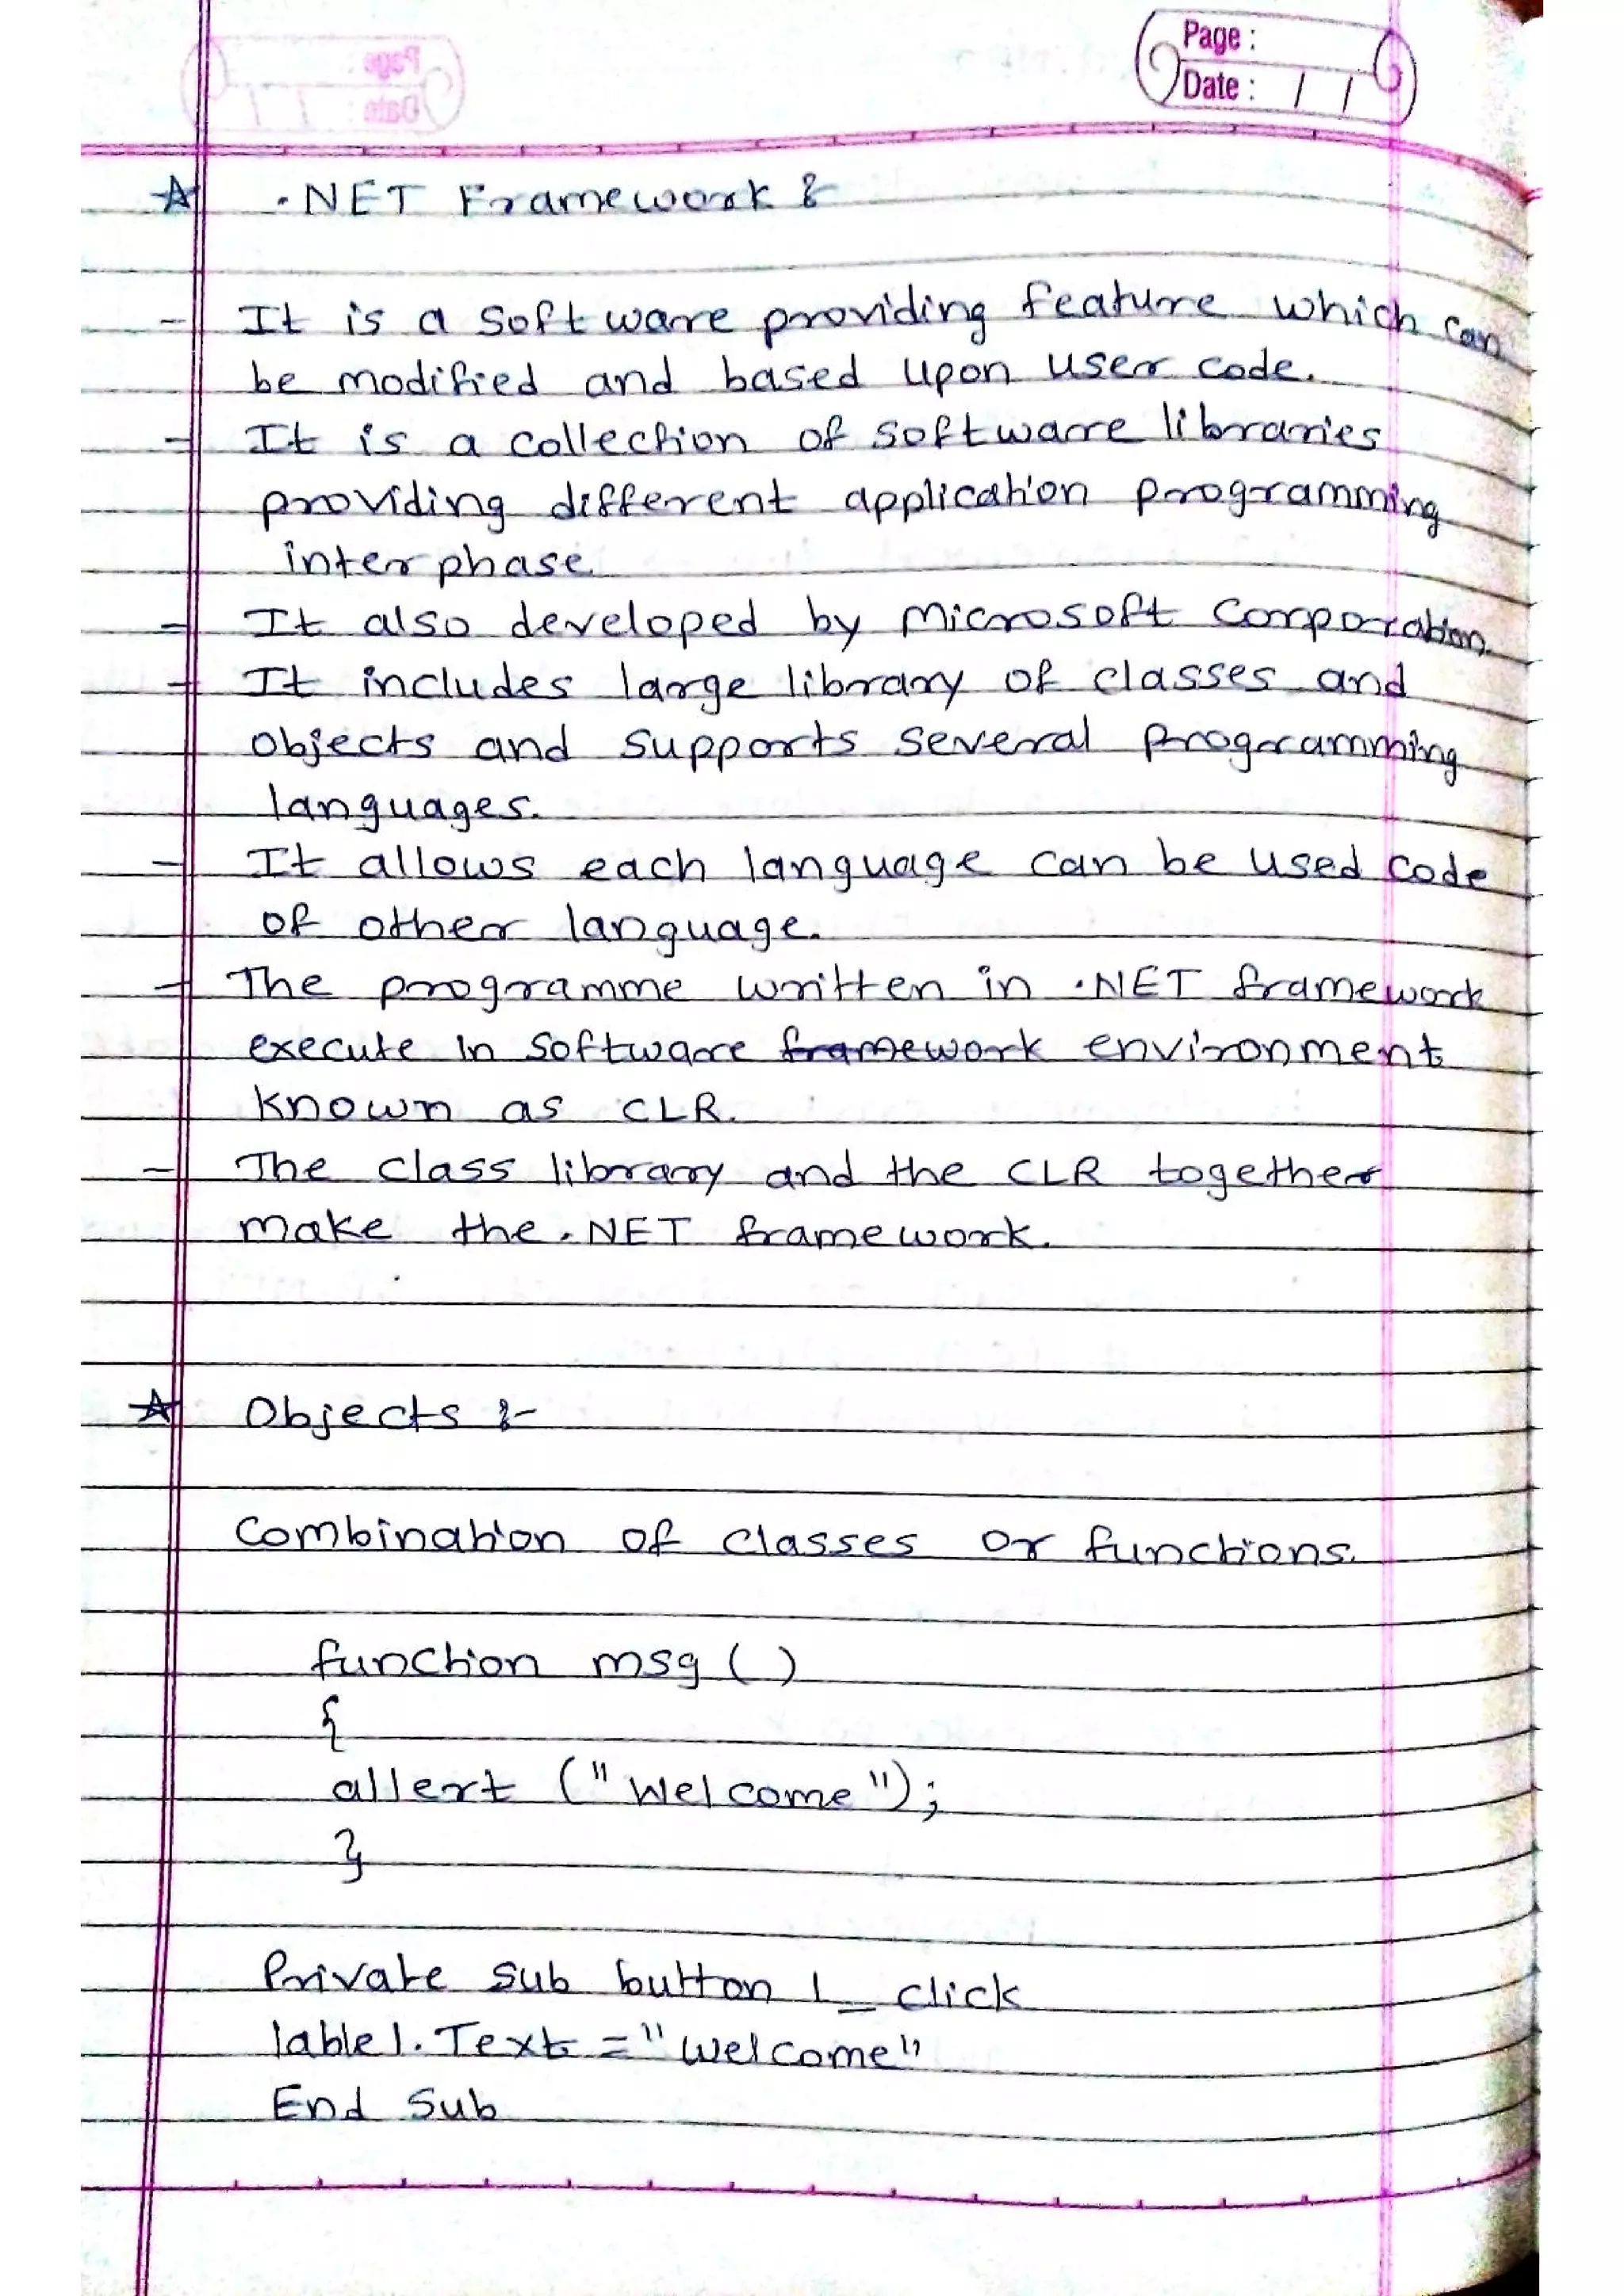 Page :
Date : / /
☆ .NET Framework :-
- It is a software providing feature which can
be modified and based upon user code.
- It is a collection of software libraries
providing different application programming
interphase
- It also developed by Microsoft Corporation.
- It includes large library of classes and
objects and supports several programming
languages.
- It allows each language can be used code
of other language.
- The programme written in .NET framework
execute in software framework environment
known as CLR.
- The class library and the CLR together
make the .NET framework.
☆ Objects :-
Combination of classes or functions.
function msg ( )
{
allert ("Welcome");
}
Private sub button 1_ click
lable1.Text = "Welcome"
End Sub